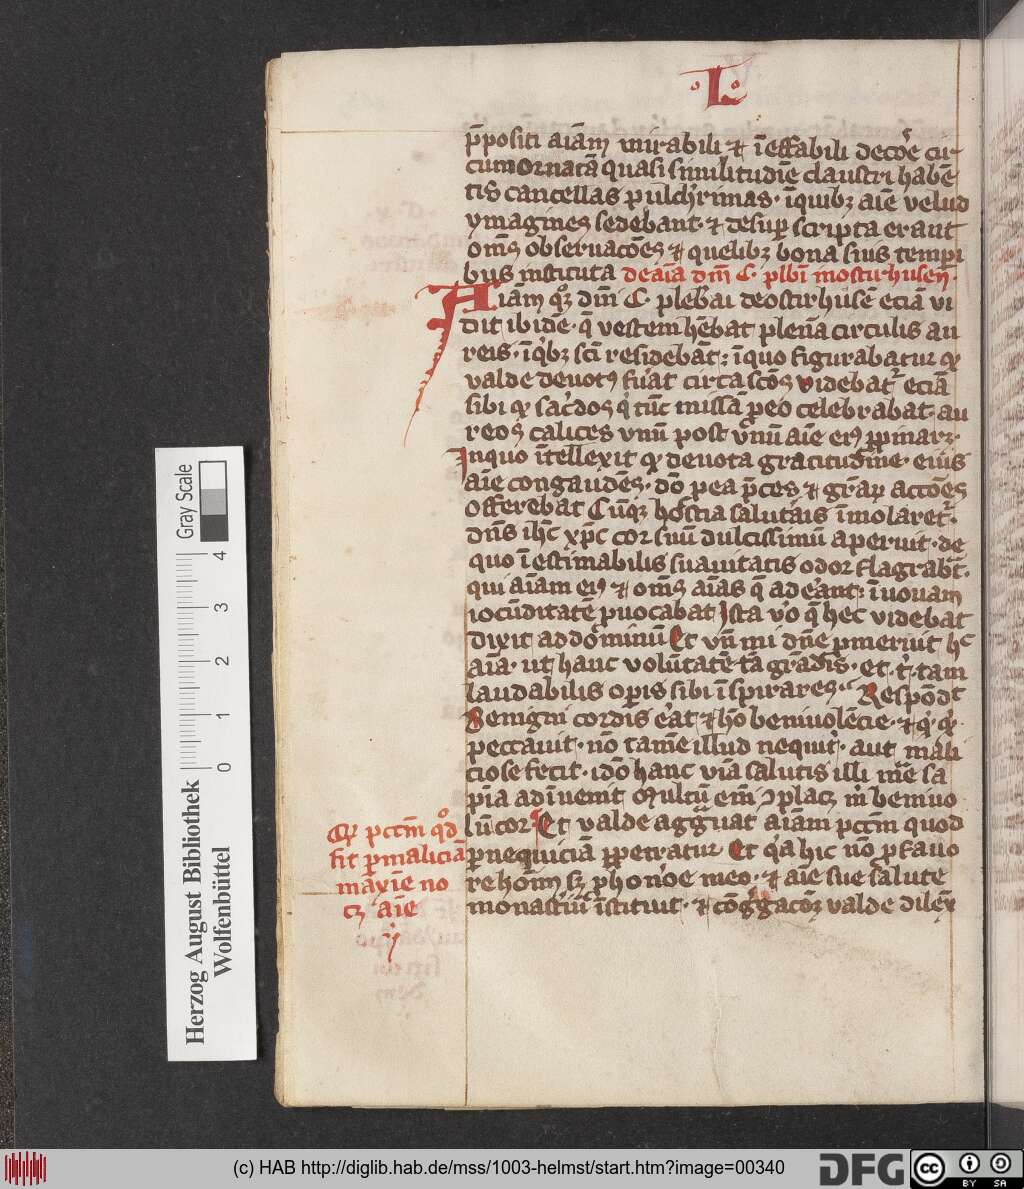 L
p̄positi aiām mirabili ⁊ īeffabili decōe cir
cumornatā quasi similitudīe claustri habē
tis cancellas pulchrimas· īquibꝫ aīe velud
ymagines sedebant· ⁊ desup scripta erant
om̄s obseruacōes ⁊ quelibꝫ bona suis tempi
bus instituta de aīa dm̄ C· plbī mostirhusen·
Aiām qͦꝫ dm̄ C· plebai deostirhusē eciā vi
dit ibidē· q̄ vestem hēbat plenā circulis au
reis· īqͥbꝫ scī residebāt: īquo figurabatur qͥ
valde deuotꝰ fuat circa scōs videbatͬ eciā
sibi qͥ sacdos qͥ tūc missā peo celebrabat· au
reos calices vnū post vnū aīe eiꝰ ppinarꝫ·
Inquo ītellexit qͥ deuota gratitudīne· eiuis
aīe congaudēs· dō pea p̄ces ⁊ grāꝝ accōes
offerebat Cūqꝫ hostia salutais īmolaretͬ·
dn̄s ih̄c xp̄c cor suū dulcissimū aperuit· de
quo īestimabilis suauitatis odor flagrabt̄·
qui aīam eiꝰ ⁊ om̄s aīas q̄ adeant: īuouam
iocūditatē puocabat Ista vͦo q̄ hec videbat
dixit addominū Et vn̄ mi dn̄e pmeruit hͨ
aīa· ut hanc volūtatē tā grādis· et· tͥ· tam
laudabilis opis sibi īspirares· Respōdt
Benigni cordis eat ⁊ hō beniuolēcie· ⁊ qͥ· qͥ·
peccauit· nō tamē illud nequitͥ· aut mali
ciose fecit· idō hanc viā salutis illi m̄e sa
pīa adīuenit Multū em̄ ꝯplacꝫ mͥ beniuo
lū cor Et valde aggͣuat aiām pctm̄ quod
pnequiciā ppetratur Et qͥa hic nō p fauo
re hoīm sꝫ p honoe meo· ⁊ aīe sue salute
monastiū īstituit· ⁊ cōggacōꝫ valde dilex̄
Qͥ pctm̄ qͦd
fit p maliciā
maxīe no
cꝫ aīe
Gray Scale
4
3
2
1
0
Herzog August Bibliothek
Wolfenbüttel
(c) HAB http://diglib.hab.de/mss/1003-helmst/start.htm?image=00340
DFG
cc BY SA